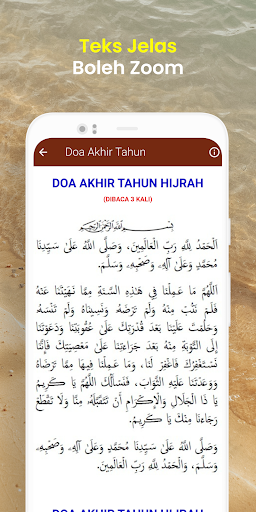 Teks Jelas
Boleh Zoom
Doa Akhir Tahun
DOA AKHIR TAHUN HIJRAH
(DIBACA 3 KALI)
بِسْمِ اللَّهِ الرَّحْمَنِ الرَّحِيمِ
اَلْحَمْدُ لِلَّهِ رَبِّ الْعَالَمِينَ، وَصَلَّى اللَّهُ عَلَىٰ سَيِّدِنَا
مُحَمَّدٍ وَعَلَىٰ آلِهِ، وَصَحْبِهِ، وَسَلَّمَ.
اَللَّهُمَّ مَا عَمِلْنَا فِي هَٰذِهِ السَّنَةِ مِمَّا نَهَيْتَنَا عَنْهُ
فَلَمْ نَتُبْ مِنْهُ وَلَمْ تَرْضَهُ وَنَسِينَاهُ وَلَمْ تَنْسَهُ
وَحَلُمْتَ عَلَيْنَا بَعْدَ قُدْرَتِكَ عَلَىٰ عُقُوبَتِنَا وَدَعَوْتَنَا
إِلَى التَّوْبَةِ مِنْهُ بَعْدَ جَرَاءَتِنَا عَلَىٰ مَعْصِيَتِكَ فَإِنَّا
نَسْتَغْفِرُكَ فَاغْفِرْ لَنَا، وَمَا عَمِلْنَا فِيهَا مِمَّا تَرْضَاهُ
وَوَعَدْتَنَا عَلَيْهِ الثَّوَابَ، فَنَسْأَلُكَ اللَّهُمَّ يَا كَرِيمُ
يَا ذَا الْجَلَالِ وَالْإِكْرَامِ أَنْ تَتَقَبَّلَهُ، مِنَّا وَلَا تَقْطَعْ
رَجَاءَنَا مِنْكَ يَا كَرِيمُ.
وَصَلَّى اللَّهُ عَلَىٰ سَيِّدِنَا مُحَمَّدٍ وَعَلَىٰ آلِهِ، وَصَحْبِهِ،
وَسَلَّمَ، وَالْحَمْدُ لِلَّهِ رَبِّ الْعَالَمِينَ.
DOA AKHIR TAHUN HIJRAH